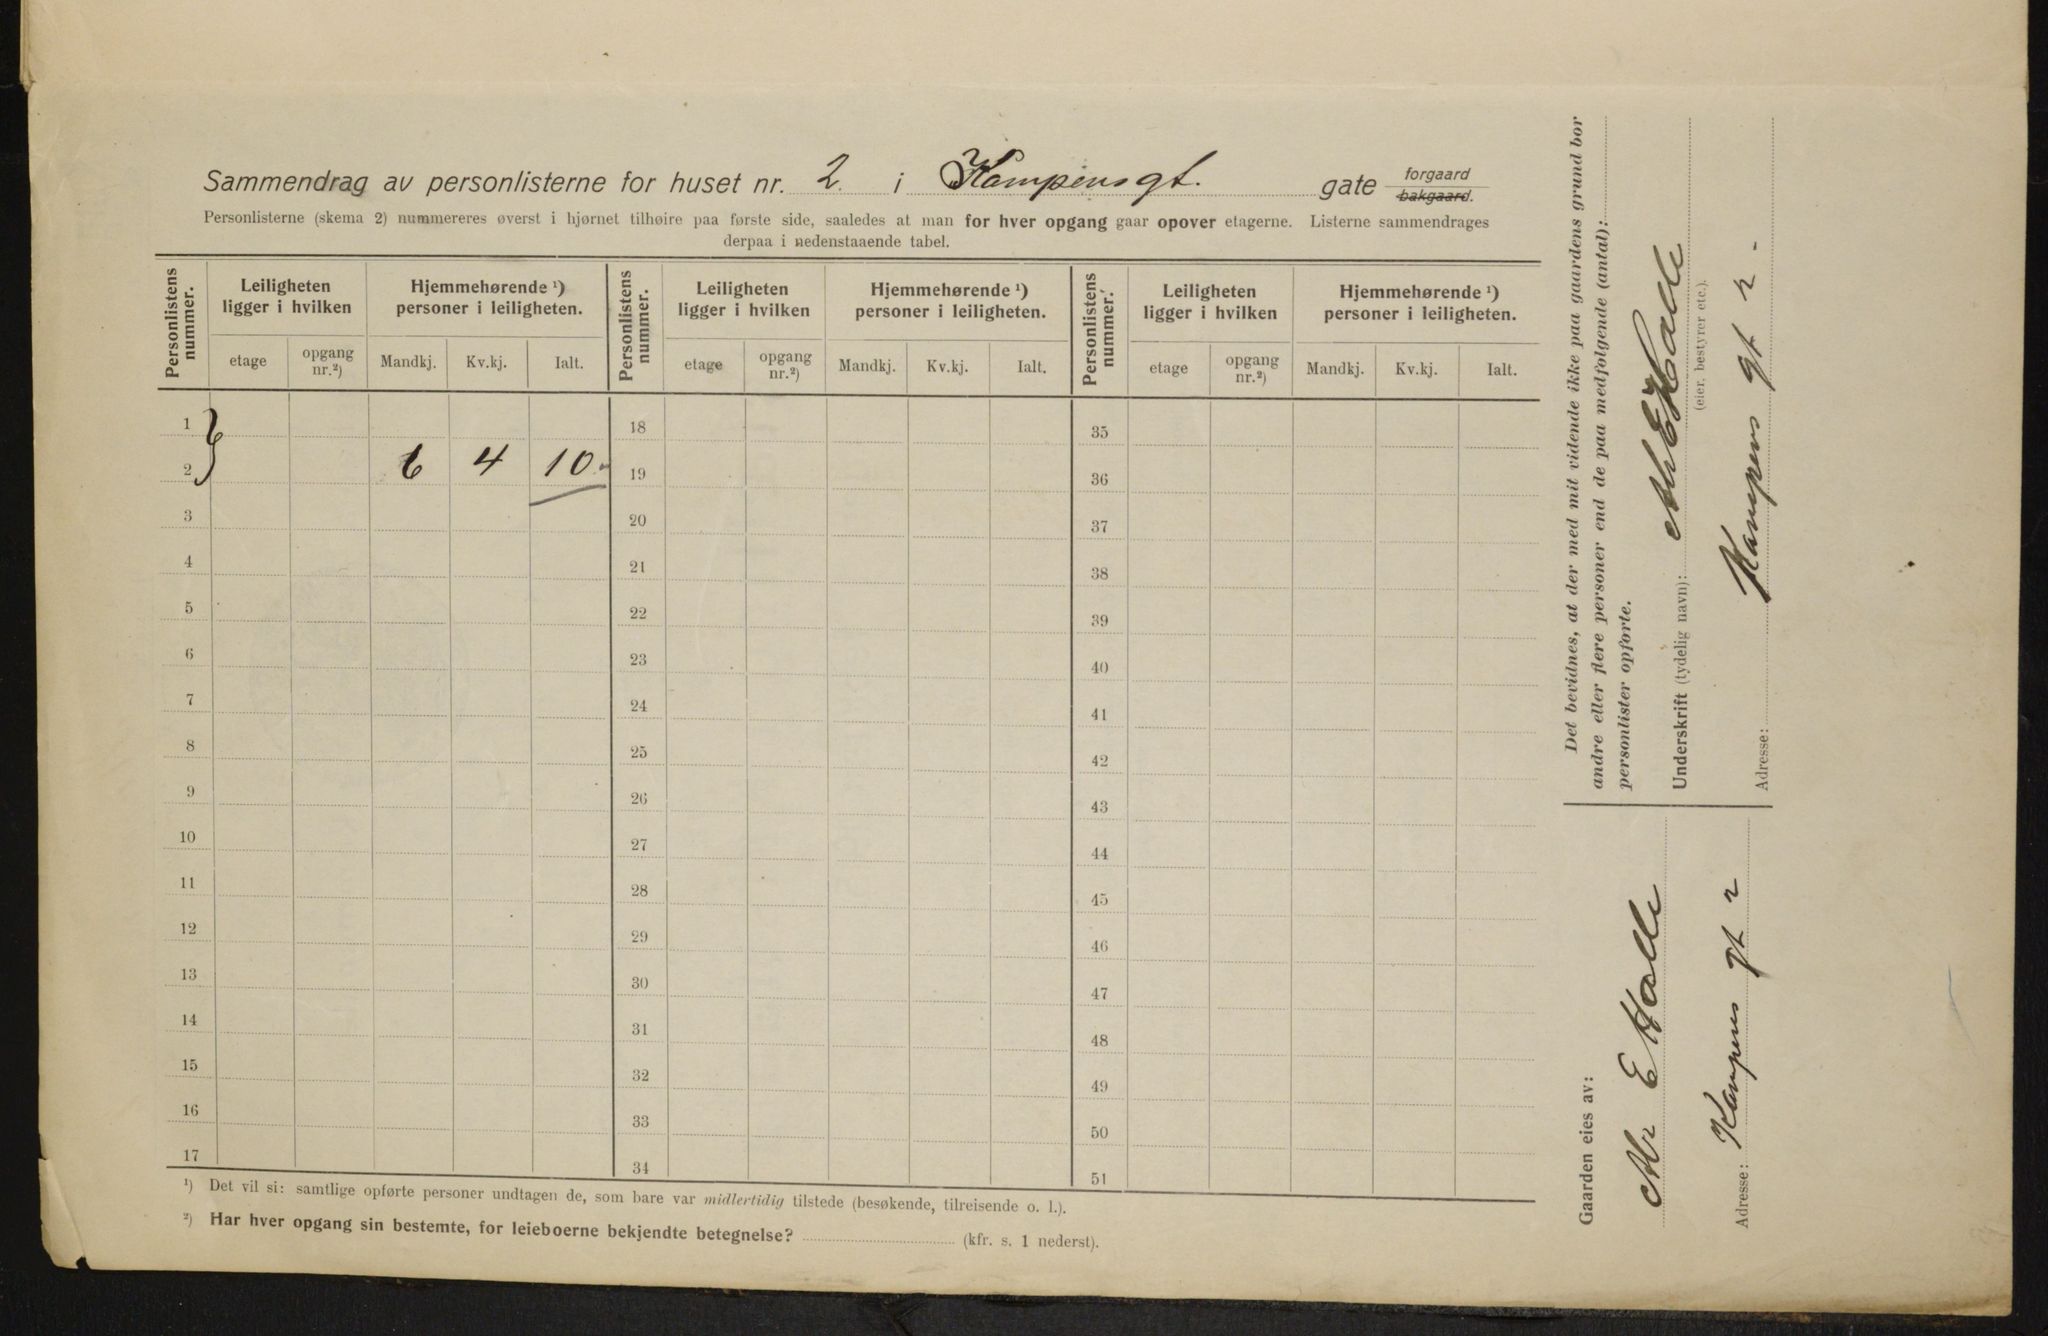 Sammendrag av personlisterne for huset nr. 2. i Kampensgt. gate forgaard bakgaard.
Personlisterne (skema 2) nummereres øverst i hjørnet tilhøire paa første side, saaledes at man for hver opgang gaar opover etagerne. Listerne sammendrages
derpaa i nedenstaaende tabel.
Personlistens nummer. Leiligheten ligger i hvilken Hjemmehørende ¹) personer i leiligheten. Personlistens nummer. Leiligheten ligger i hvilken Hjemmehørende ¹) personer i leiligheten. Personlistens nummer. Leiligheten ligger i hvilken Hjemmehørende ¹) personer i leiligheten.
etage opgang nr.²) Mandkj. Kv.kj. Ialt. etage opgang nr.²) Mandkj. Kv.kj. Ialt. etage opgang nr.²) Mandkj. Kv.kj. Ialt.
1 18 35
2 6 4 10 19 36
3 20 37
4 21 38
5 22 39
6 23 40
7 24 41
8 25 42
9 26 43
10 27 44
11 28 45
12 29 46
13 30 47
14 31 48
15 32 49
16 33 50
17 34 51
¹) Det vil si: samtlige opførte personer undtagen de, som bare var midlertidig tilstede (besøkende, tilreisende o. l.).
²) Har hver opgang sin bestemte, for leieboerne bekjendte betegnelse? (kfr. s. 1 nederst).
Det bevidnes, at der med mit vidende ikke paa gaardens grund bor
andre eller flere personer end de paa medfølgende (antal):
personlister opførte.
Underskrift (tydelig navn): E Halle
(eier, bestyrer etc.).
Adresse: Kampens gt 2 -
Gaarden eies av:
E Halle
Adresse: Kampens gt 2